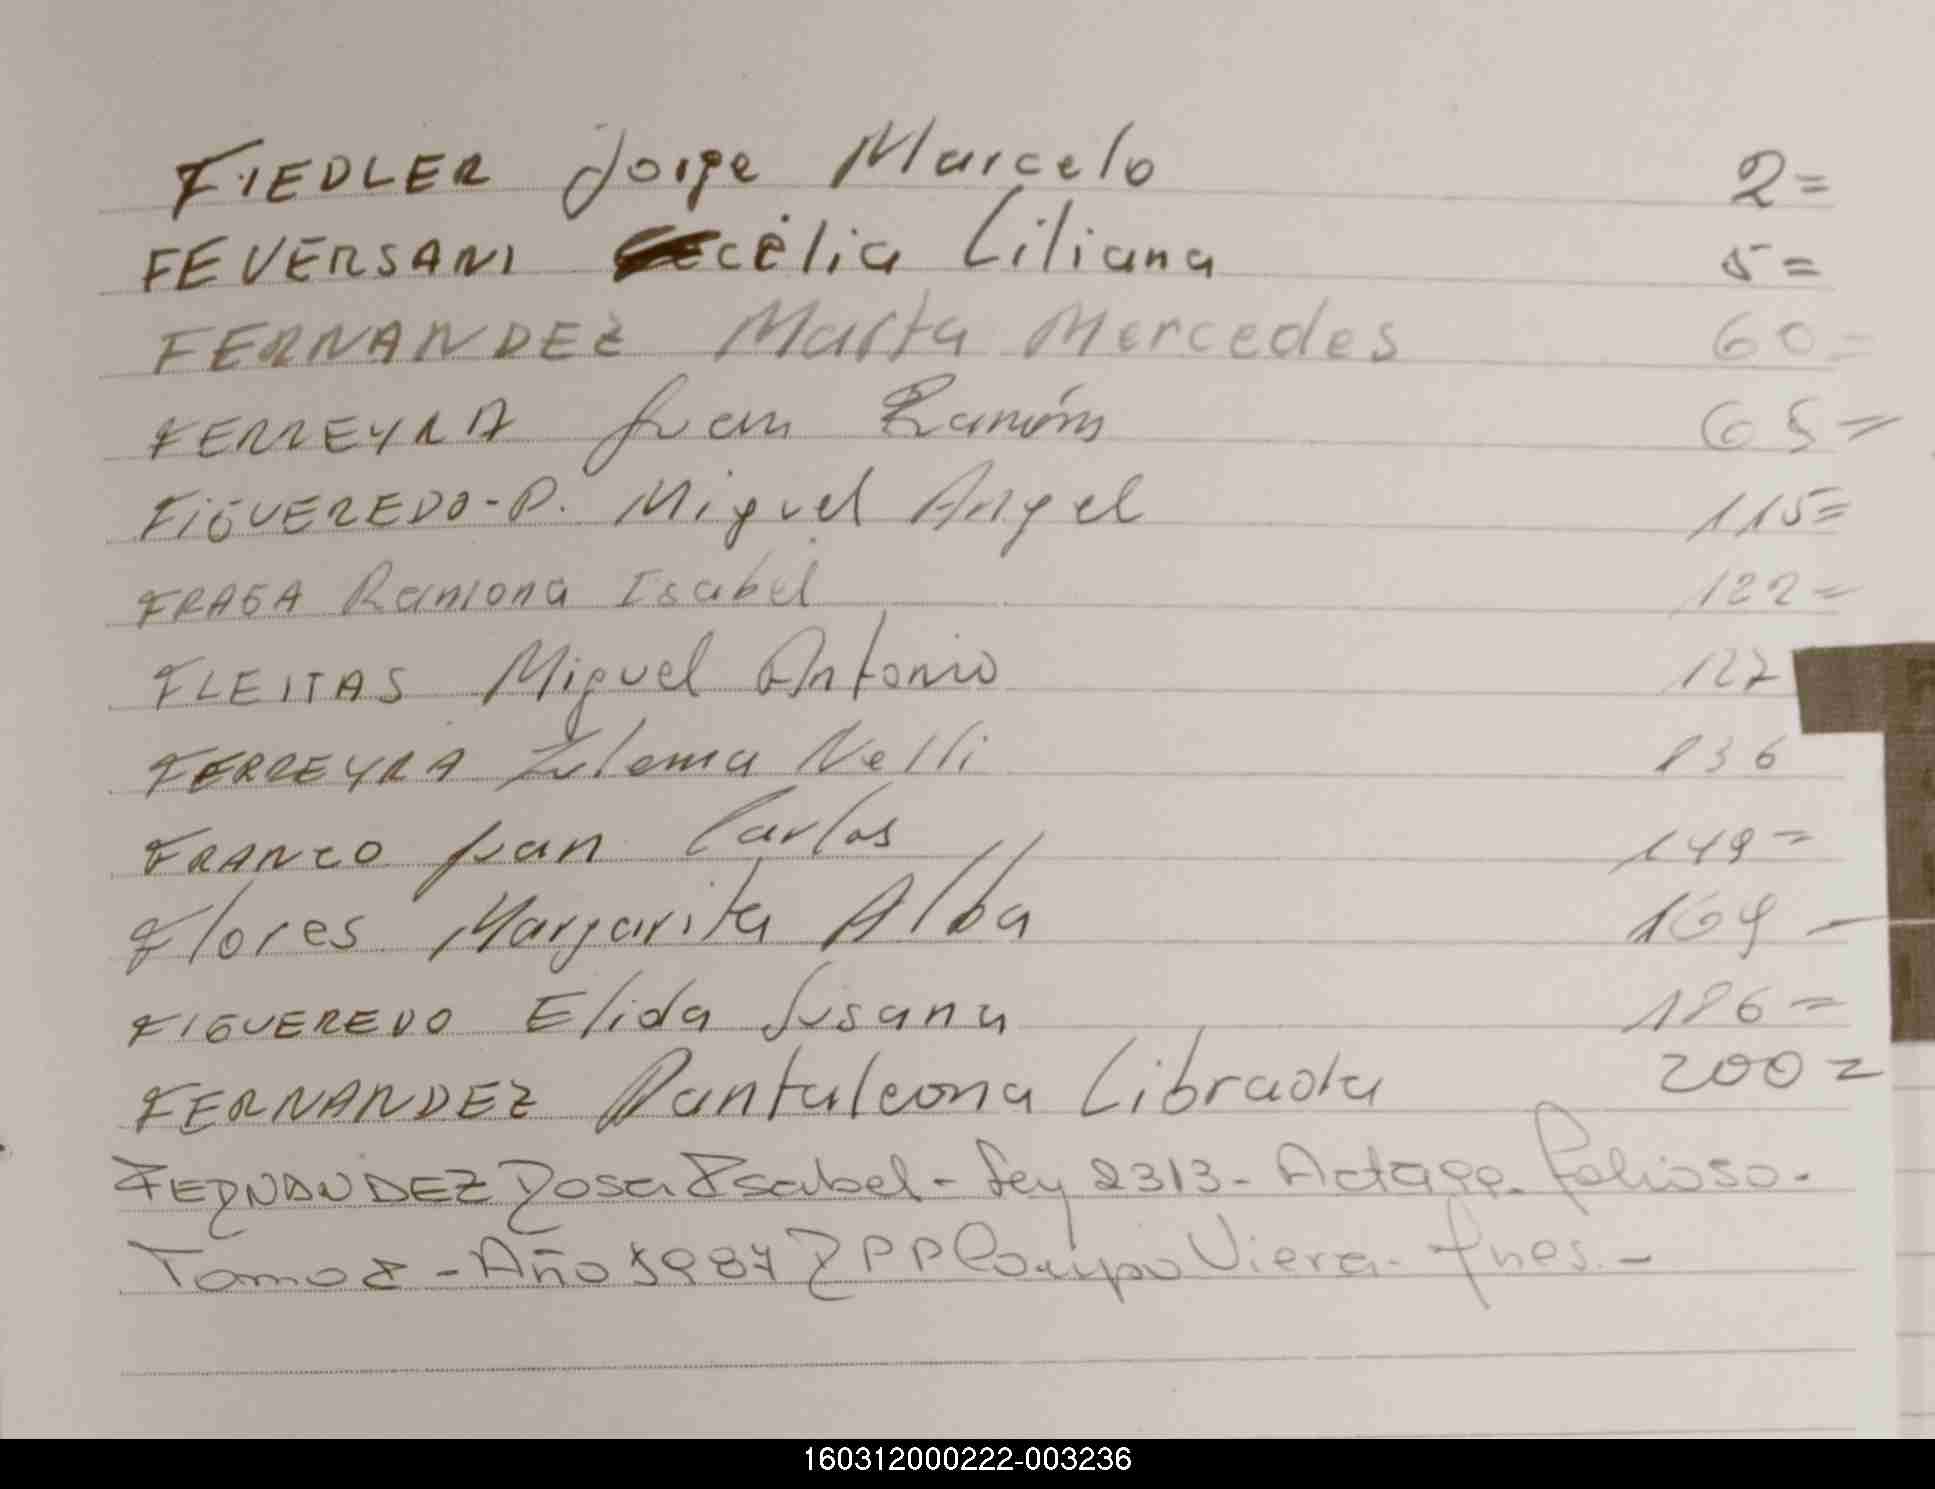 FIEDLER Jorge Marcelo 2=
FEVERSANI célia Liliana 5=
FERNANDEZ Marta Mercedes 60=
FERREYRA Juan Ramón 65=
FIGUEREDO-P. Miguel Angel 115=
FRAGA Ramona Isabel 122=
FLEITAS Miguel Antonio 127
FERREYRA Zulema Nelli 136
FRANCO Juan Carlos 149=
Flores Margarita Alba 169-
FIGUEREDO Elida Susana 186=
FERNANDEZ Pantaleona Librada 200=
FERNANDEZ Rosa Isabel - Ley 2313 - Acta folio 50.
Tomo 2 - Año 1987 RPP Campo Viera. Mnes. -
160312000222-003236